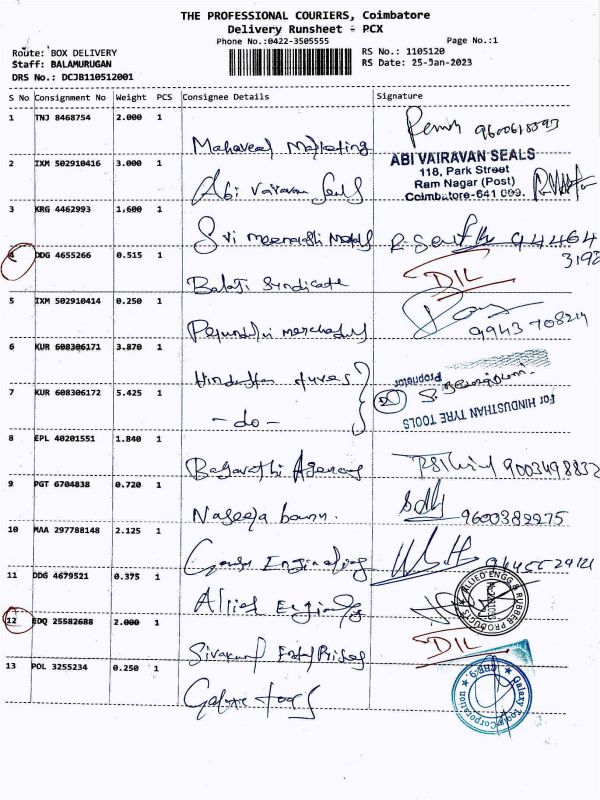 THE PROFESSIONAL COURIERS, Coimbatore
Delivery Runsheet - PCX
Phone No.:0422-3505555
Page No.:1
Route: BOX DELIVERY
RS No.: 1105120
Staff: BALAMURUGAN
RS Date: 25-Jan-2023
DRS No.: DCJB110512001
S No Consignment No Weight PCS Consignee Details Signature
1 TNJ 8468754 2.000 1
Mahaveer Marketing
2 IXM 502910416 3.000 1
ABI VAIRAVAN SEALS
118, Park Street
Ram Nagar (Post)
Coimbatore-641 009.
Abi Vairavan Seals
3 KRG 4462993 1.600 1
Sri Meenakshi Metals
94464
3192
4 DDG 4655266 0.515 1
Balaji Syndicate DIL
5 IXM 502910414 0.250 1
9943708214
6 KUR 608306171 3.870 1
Hindusthan
Proprietor
7 KUR 608306172 5.425 1
For HINDUSTHAN TYRE TOOLS
- do -
8 EPL 40201551 1.840 1
9003498832
9 PGT 6704838 0.720 1
Naseeja banu. 9600382275
10 MAA 297788148 2.125 1
Engineering
11 DDG 4679521 0.375 1
Allied
ALLIED ENGG & RUBBER PRODUCTS
12 EDQ 25582688 2.000 1
DIL
13 POL 3255234 0.250 1
Galaxy Tools Corporation
Galaxy Tools